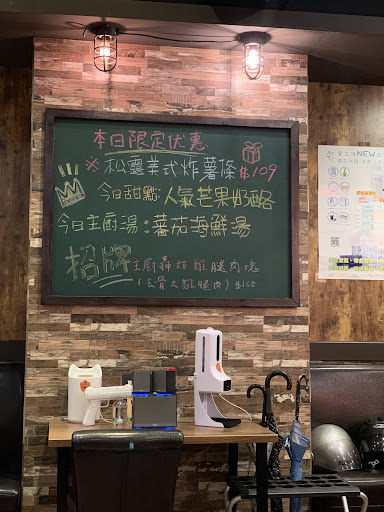 本日限定优惠
※松露美式炸薯條 $109
今日甜點:人氣芒果奶酪
今日主厨湯:蕃茄海鮮湯
招牌主厨轟炸雞腿肉塊
(去骨大雞腿肉) $160
NEW